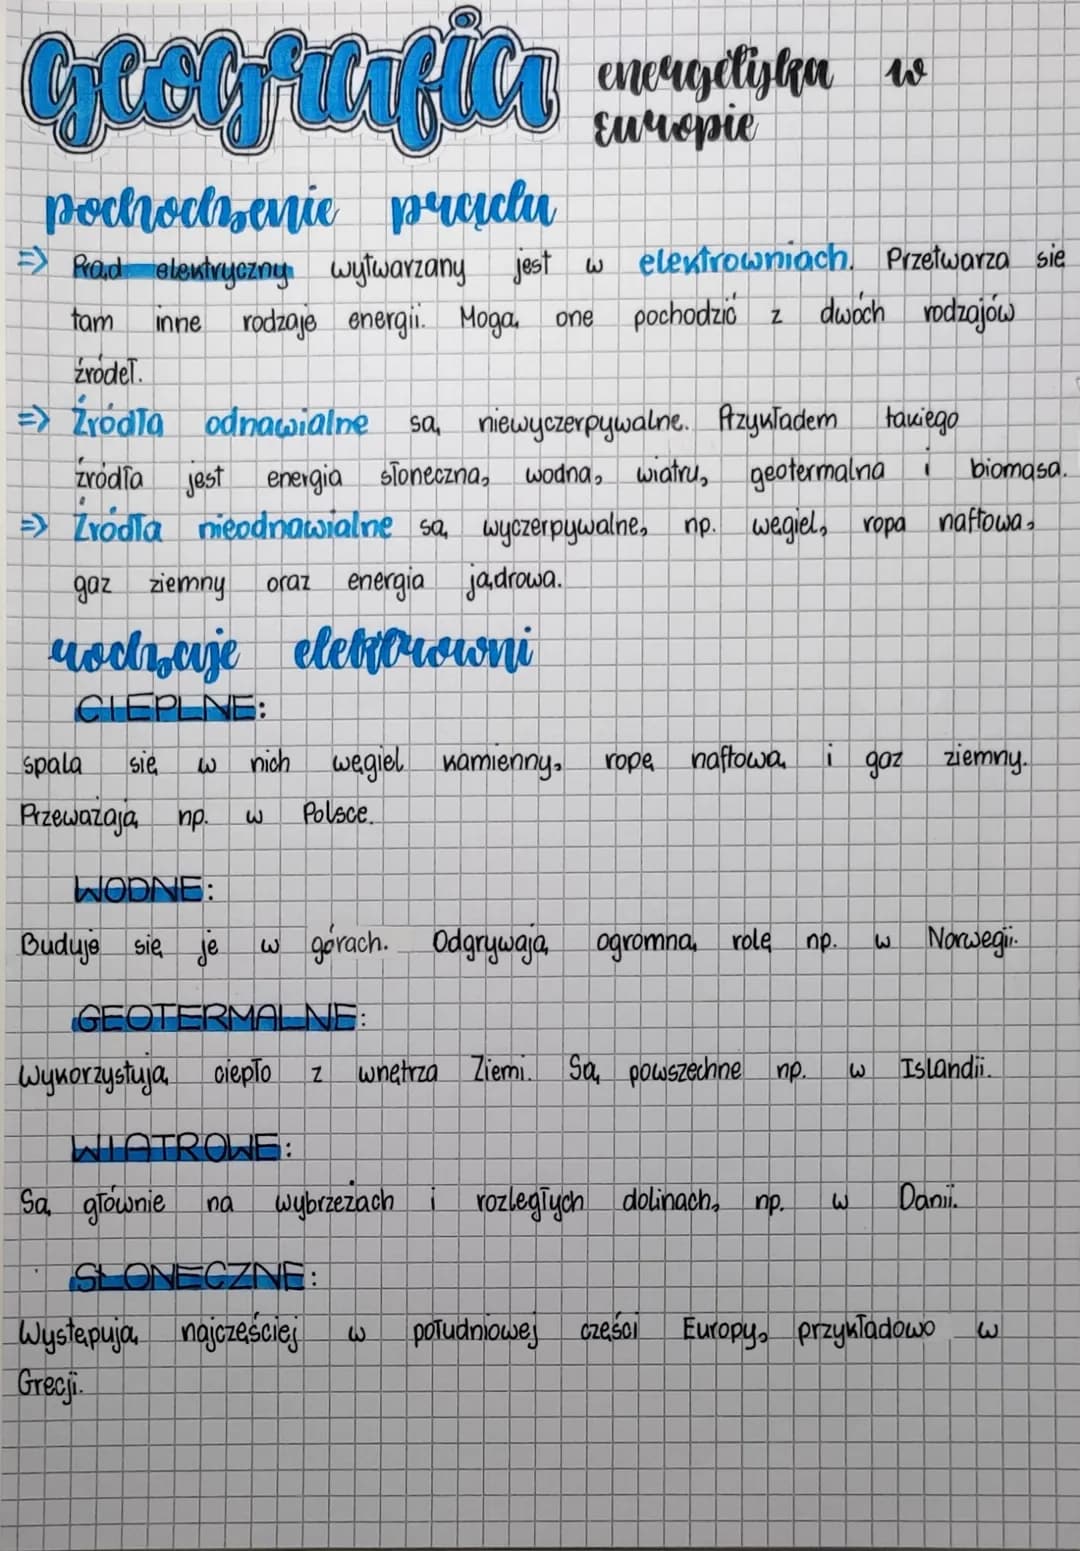 Geografia energetyka w
Europie
pochodzenie prądu
=> Prąd elektryczny wytwarzany jest w elektrowniach. Przetwarza sie
tam inne rodzaje energii. Mogą one pochodzić z dwóch rodzajów
źródeł.
=> Źródła odnawialne są niewyczerpywalne. Przykładem takiego
źródła jest energia słoneczna, wodna, wiatru, geotermalna i biomasa.
=> Źródła nieodnawialne są wyczerpywalne, np. węgiel, ropa naftowa,
gaz ziemny oraz energia jądrowa.
rodzaje elektrowni
CIEPLNE:
spala się w nich węgiel kamienny, ropę naftową i gaz ziemny.
Przeważają np. w Polsce.
WODNE:
Buduje się je w górach. Odgrywają ogromną rolę np. w Norwegii.
GEOTERMALNE:
Wykorzystują ciepło z wnętrza Ziemi. Są powszechne np. w Islandii.
WIATROWE:
Są głównie na wybrzeżach i rozległych dolinach, np. w Danii.
SŁONECZNE:
Występują najczęściej w południowej części Europy, przykładowo w
Grecji.